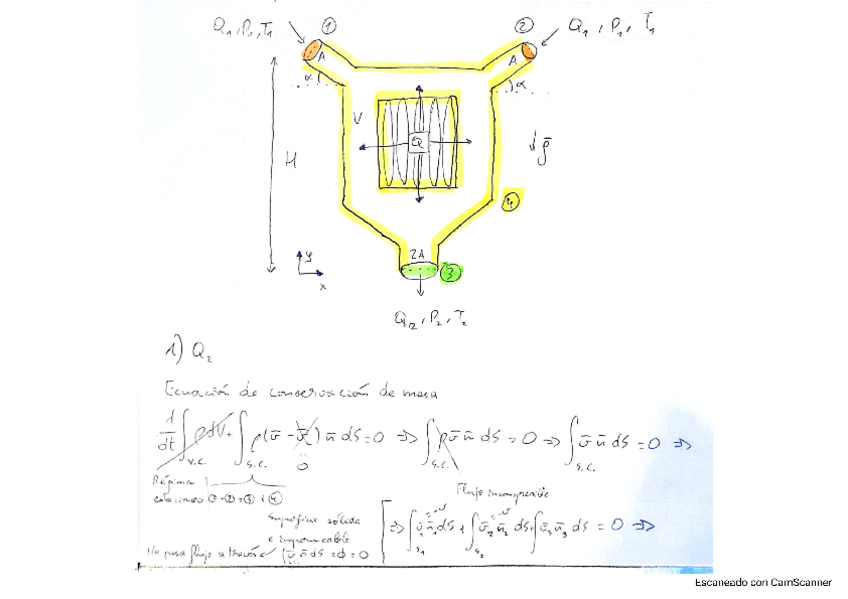 Q₁, P₁, T₁
①
②
Q₁, P₁, T₁
A
A
α
α
V
H
Q
ḡ
④
y
x
2A
③
P₂, T₂
1) Q₂
Ecuación de conservación de masa
d/dt ∫ ρdV + ∫ ρ(v̄ - v̄c) n̄ dS = 0 => ∫ ρ v̄ n̄ dS = 0 => ∫ v̄ n̄ dS = 0 =>
V.C. S.C. 0 S.C. S.C.
Régimen
estacionario
Flujo incompresible
Superficie sólida
e impermeable
No pasa flujo a través
=> ∫ v̄₁ n̄₁ dS + ∫ v̄₂ n̄₂ dS + ∫ n̄₃ dS = 0 =>
S₁ S₂
Escaneado con CamScanner